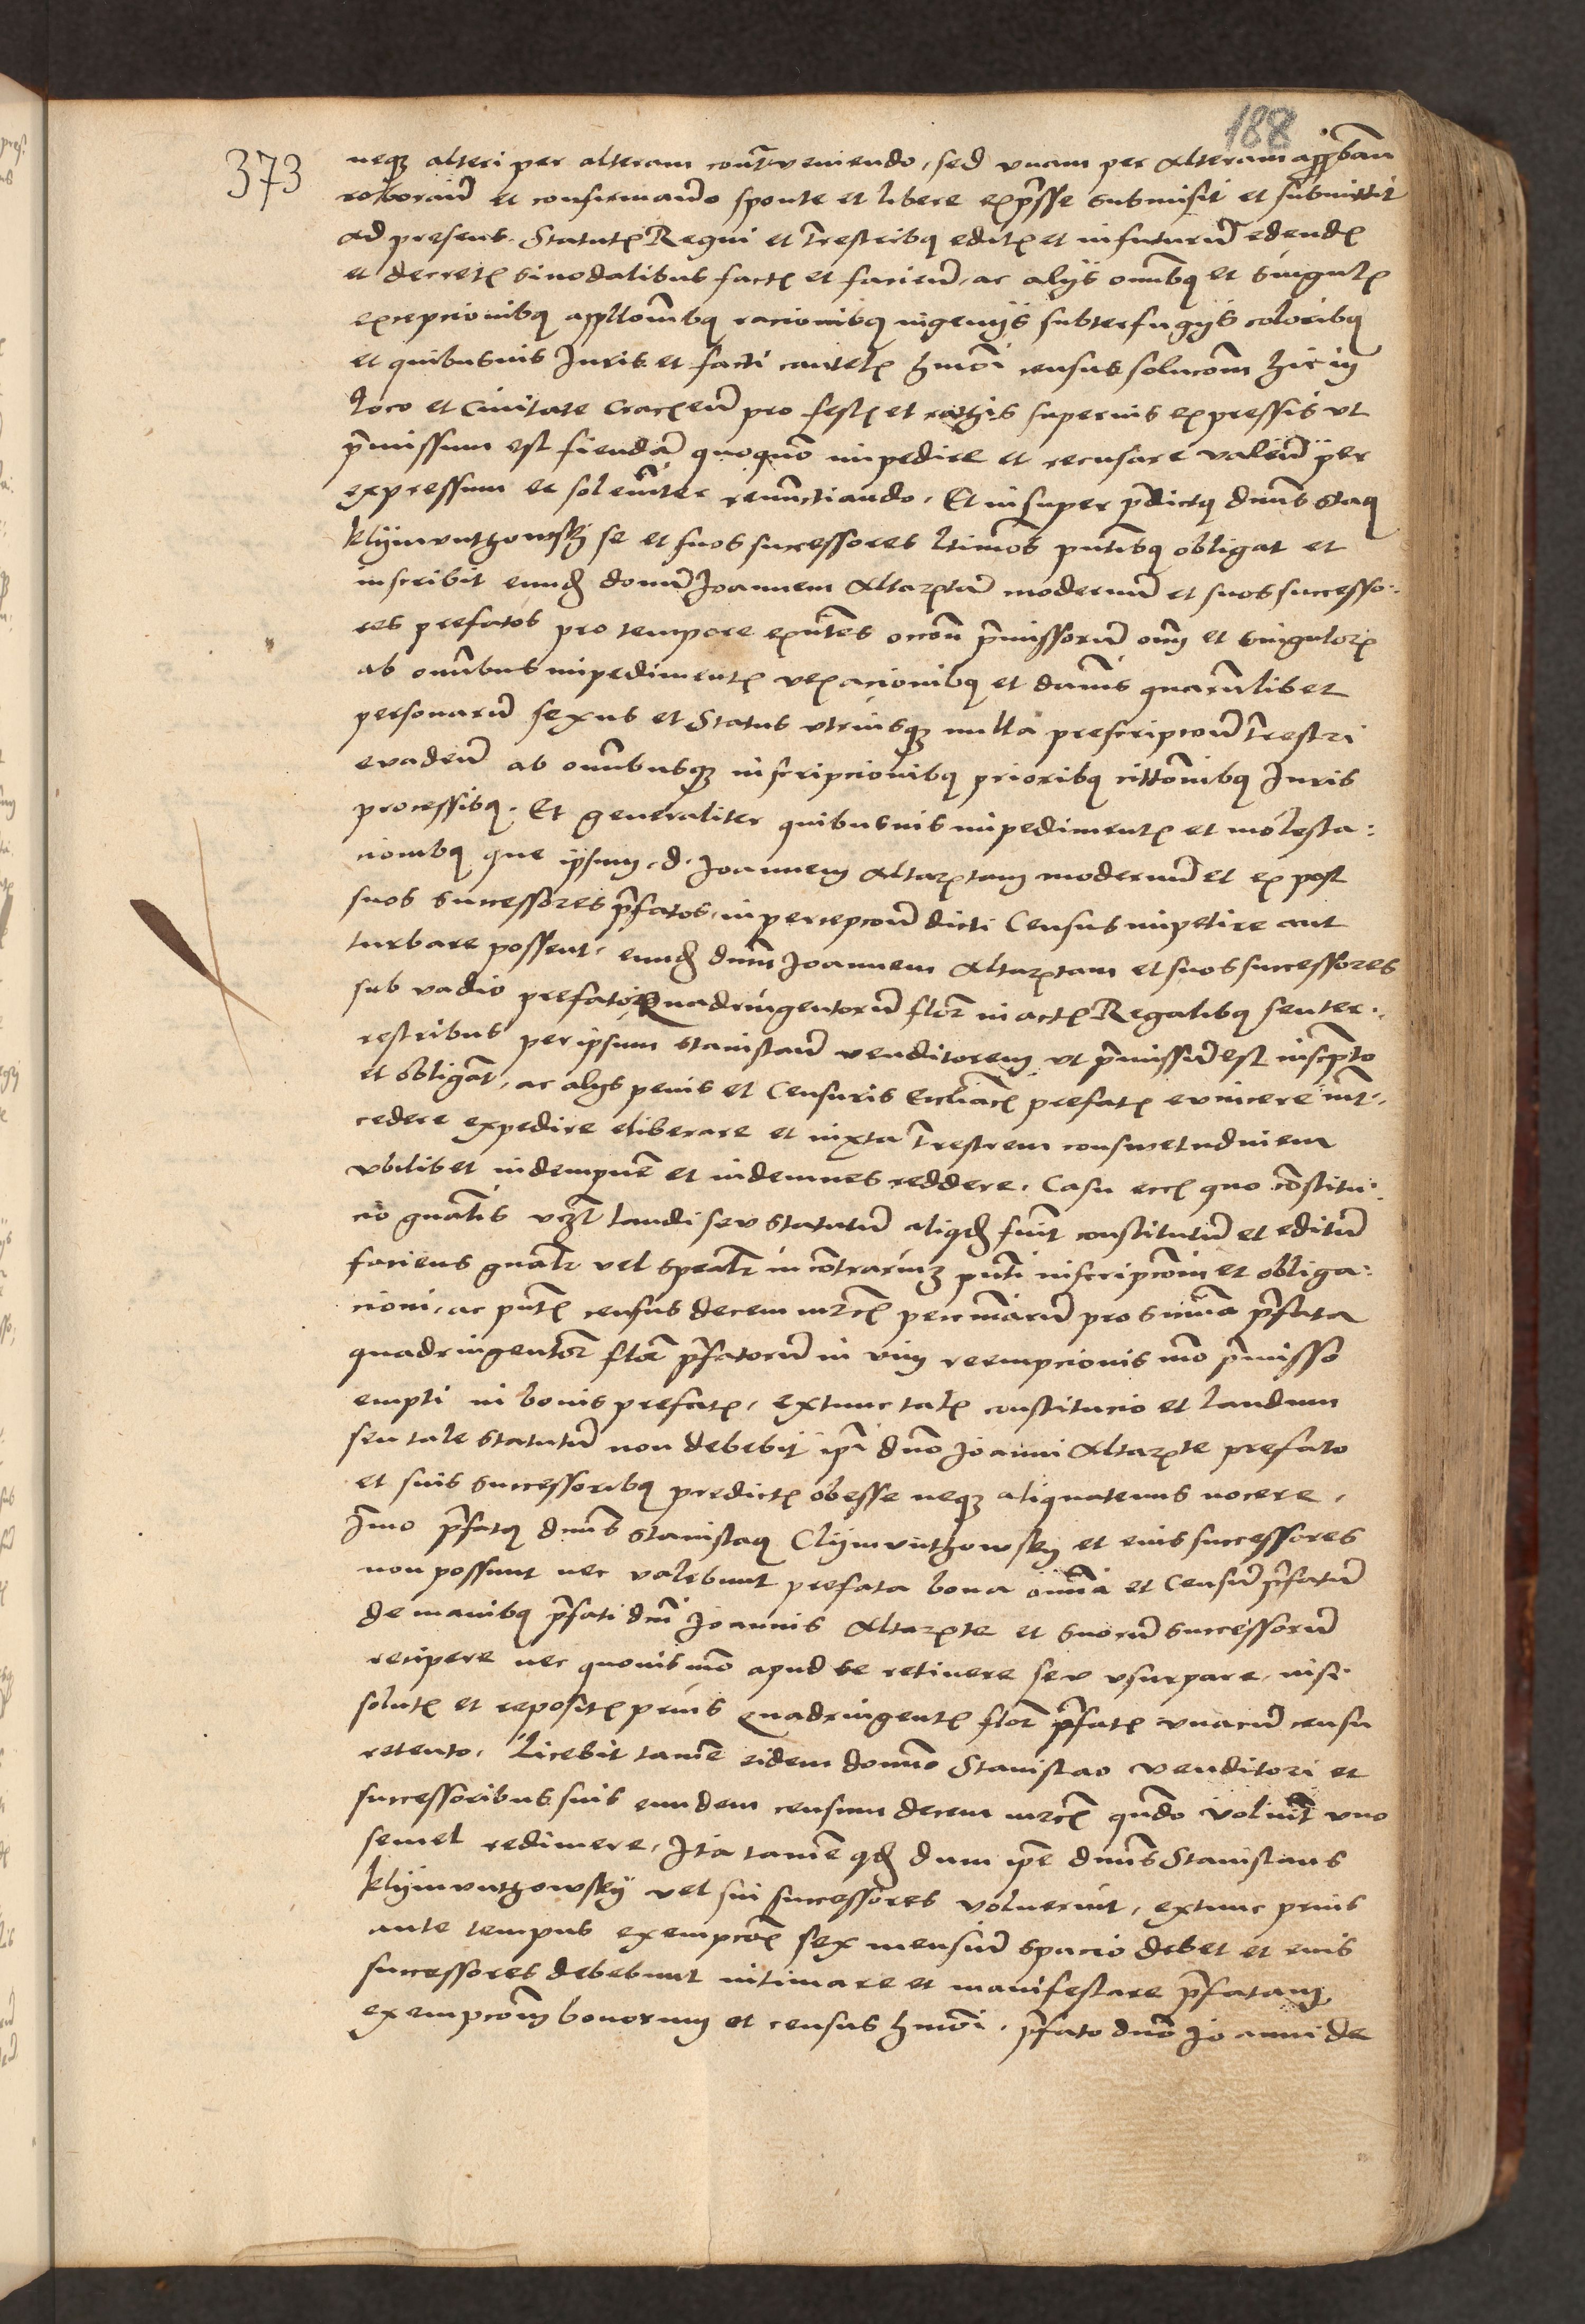 188
373
neqȝ alteri per alteram contraveniendo, sed vnam per alteram approband
roborand et confirmando sponte et libere expresse submisit et submittit
ad presens. Statutis Regni et Trestribq editis et in futurum edendis
et decretis sinodalibus factis et faciend, ac alijs omnibq et singulis
excepcionibq appllonibq racionibq ingenijs subterfugijs coloribq
et quibusuis Iuris et facti cautelis hmoi census solucom hic in
loco et Ciuitate Cracouien pro festis et rathis superius expressis vt
premissum est fiendam quoquo impedire et recusare valen per
expressum et solenniter renunctiando. Et insuper predictq dnus Staq
Klijmunthowskij se et suos successores ltimos pntibq obligat et
inscribit eundem donum Joannem Altaristam modernum et suos successo:
res prefatos pro tempore existentes occone premissorum omnium et singulorum
ab omnibus impedimentis vexacionibq et damnis quarumlibet
personarum sexus et Status vtriusqȝ nulla prescripcione Trestri
evaden ab omnibusqȝ inscripcionibq prioribq cittonibq Iuris
processibq. Et generaliter quibusuis impedimentis et molesta:
cionibq que ipsum d. Joannem Altaristam modernum et ex post
suos successores prefatos, in percepcione dicti Census impetire aut
turbare possent, eundem dnum Joannem Altaristam et suos successores
sub vadio prefatorum Quadringentorum florenorum in actis Regalibq seu ter:
restribus per ipsum Stanislaum venditorem vt premissum est inscripto
et obligat, ac alijs penis et Censuris Eccliacis prefatis evincere inter:
cedere expedire eliberare et iuxta Trestrem consuetudinem
vbilibet indempnem et indemnes reddere. Casu eciam quo constitu:
cio gnalis vtȝ laudi seu statutum aliqd fuerit constitutum et editum
faciens gnaliter vel spealiter in contrarium pnti inscripcioni et obliga:
cioni, ac pntis census decem mrcis pecuniarum pro summa prefata
quadringentorum florenorum prefatorum in vim reempcionis mo premisso
empti in bonis prefatis, extunc talis constitucio et laudum
seu tale statutum non debebit ipsi dno Joanni Altariste prefato
et suis successoribq predictis obesse neqȝ aliquatenus nocere,
Immo prefatq dnus Stanislaq Clijmunthowskij et eius successores
non possunt nec valebunt prefata bona omnia et Censum prefatum
de manibq prefati dni Joannis Altariste et suorum successorum
recipere nec quouis mo apud se retinere seu vsurpare, nisi
solutis et repositis prius quadringentis florenis prefatis vnacum censu
retento. Licebit tamen eidem domino Stanislao venditori et
successoribus suis eundem censum decem mrcis qundo voluerint vno
semel redimere, Ita tamen qd dum ipse dnus Stanislaus
Klijmunthowskij vel sui successores voluerint, extunc prius
ante tempus exempcois sex mensium spacio debet et eius
successores debebunt intimare et manifestare prefatam
exempcom bonorum et census hmoi, prefato dno Joanni de